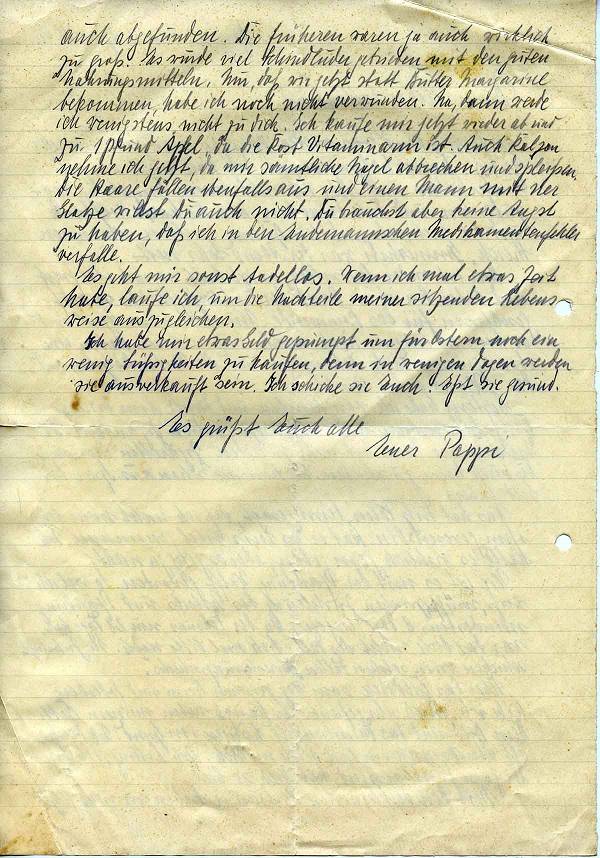 auch abgefunden. Die früheren waren ja auch wirklich
zu groß. Es wurde viel Schindluder getrieben mit den guten
Nahrungsmitteln. Nur, daß wir jetzt statt Butter Margarine
bekommen, habe ich noch nicht verwunden. Na, dann werde
ich wenigstens nicht zu dick. Ich kaufe mir jetzt wieder ab und
zu 1 Pfund Äpfel, da die Kost Vitaminarm ist. Auch Kalzan
nehme ich jetzt, da mir sämtliche Nägel abbrechen und spleißen.
Die Haare fallen ebenfalls aus und einen Mann mit der
Glatze willst Du auch nicht. Du brauchst aber keine Angst
zu haben, daß ich in den Medikamentenfehler
verfalle.
Es geht mir sonst tadellos. Wenn ich mal etwas Zeit
habe, laufe ich, um die Nachteile meiner sitzenden Lebens
weise auszugleichen.
Ich habe mir etwas Geld gepumpt um für Ostern noch ein
wenig Süßigkeiten zu kaufen, denn in wenigen Tagen werden
sie ausverkauft sein. Ich schicke sie Euch. Eßt sie gesund.
Es grüßt Euch alle
Euer Pappi